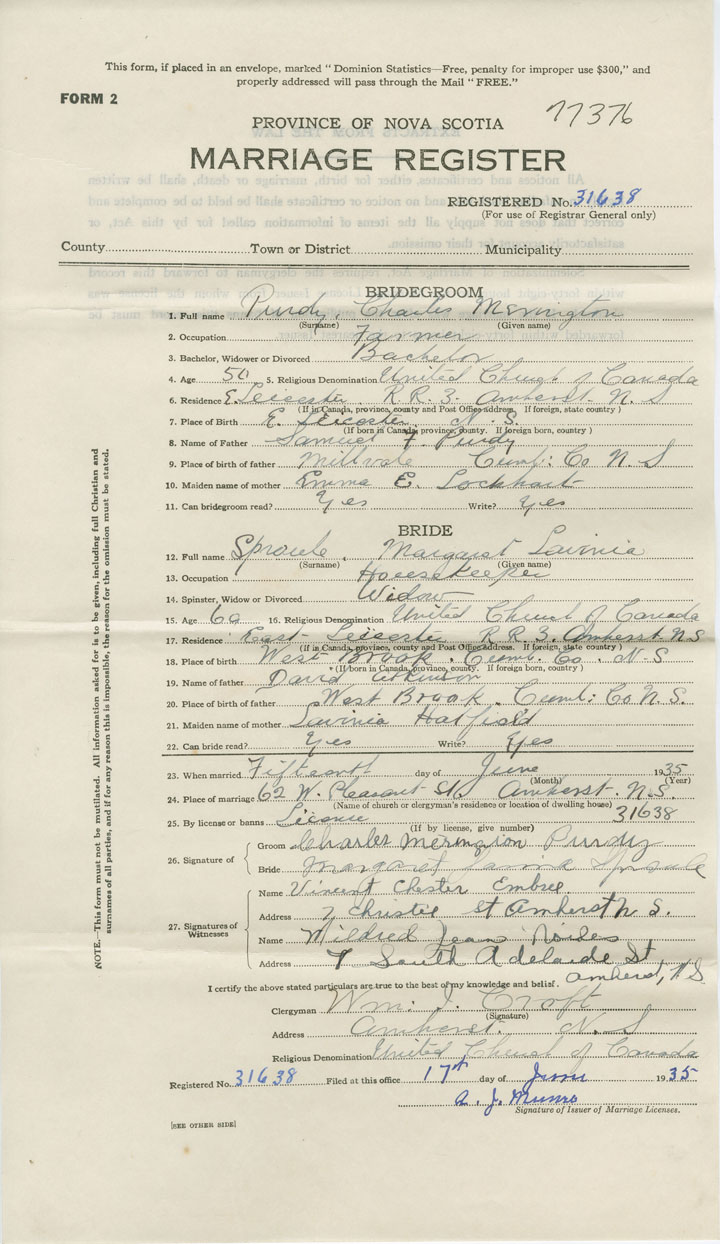 This form, if placed in an envelope, marked "Dominion Statistics—Free, penalty for improper use $300," and
properly addressed will pass through the Mail "FREE."
FORM 2
77376
PROVINCE OF NOVA SCOTIA
MARRIAGE REGISTER
REGISTERED No. 31638
(For use of Registrar General only)
County Town or District Municipality
BRIDEGROOM
1. Full name Purdy, Charles Merington
(Surname) (Given name)
2. Occupation Farmer
3. Bachelor, Widower or Divorced Bachelor
4. Age 50 5. Religious Denomination United Church of Canada
6. Residence E. Leicester R.R. 3. Amherst N. S
(If in Canada, province, county and Post Office address. If foreign, state country)
7. Place of Birth E. Leicester N. S.
(If born in Canada, province, county. If foreign born, country)
8. Name of Father Samuel F. Purdy
9. Place of birth of father Millvale Cumb: Co N S
10. Maiden name of mother Emma E. Lockhart
11. Can bridegroom read? Yes Write? Yes
BRIDE
12. Full name Sproule, Margaret Lavinia
(Surname) (Given name)
13. Occupation Housekeeper
14. Spinster, Widow or Divorced Widow
15. Age 60 16. Religious Denomination United Church of Canada
17. Residence East Leicester R.R. 3. Amherst N S
(If in Canada, province, county and Post Office Address. If foreign, state country)
18. Place of birth West Brook. Cumb. Co. N. S
(If born in Canada, province, county. If foreign born, country)
19. Name of father David Atkinson
20. Place of birth of father West Brook. Cumb: Co N. S.
21. Maiden name of mother Lavinia Hatfield
22. Can bride read? Yes Write? Yes
23. When married Fifteenth day of June 1935
(Month) (Year)
24. Place of marriage 62 W. Pleasant St. Amherst. N. S.
(Name of church or clergyman's residence or location of dwelling house)
25. By license or banns License 31638
(If by license, give number)
26. Signature of Groom Charles Merington Purdy
Bride Margaret Lavinia Sproule
27. Signatures of Witnesses Name Vincent Chester Embree
Address 7 Christie St Amherst N S.
Name Mildred Jean
Address 7 South Adelaide St
Amherst, N. S.
I certify the above stated particulars are true to the best of my knowledge and belief.
Clergyman Wm. J. Croft
(Signature)
Address Amherst. N. S
Religious Denomination United Church of Canada
Registered No. 31638 Filed at this office 17th day of June 1935
A. J. Munro
Signature of Issuer of Marriage Licenses.
[SEE OTHER SIDE]
NOTE.—This form must not be mutilated. All information asked for is to be given, including full Christian and
surnames of all parties, and if for any reason this is impossible, the reason for the omission must be stated.